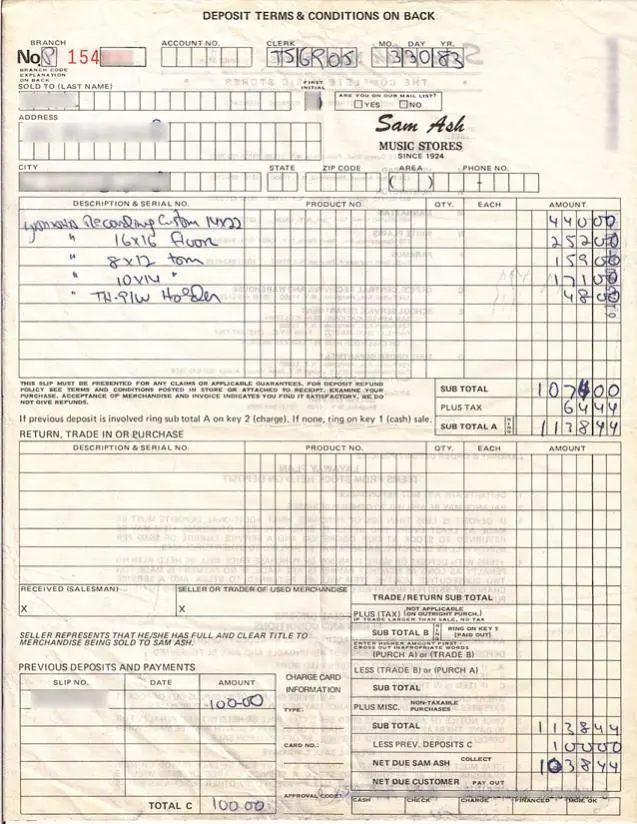 DEPOSIT TERMS & CONDITIONS ON BACK
BRANCH ACCOUNT NO. CLERK MO. DAY YR.
No 154 33083
BRANCH CODE
EXPLANATION
ON BACK
SOLD TO (LAST NAME) FIRST INITIAL ARE YOU ON OUR MAIL LIST?
YES NO
ADDRESS
Sam Ash
MUSIC STORES
SINCE 1924
CITY STATE ZIP CODE AREA PHONE NO.
DESCRIPTION & SERIAL NO. PRODUCT NO. QTY. EACH AMOUNT
Recording Custom 14X22 44000
" 16X16 floor 25200
" 8X12 tom 15900
" 10X14 " 17100
" Holder 4800
THIS SLIP MUST BE PRESENTED FOR ANY CLAIMS OR APPLICABLE GUARANTEES. FOR DEPOSIT REFUND
POLICY SEE TERMS AND CONDITIONS POSTED IN STORE OR ATTACHED TO RECEIPT. EXAMINE YOUR
PURCHASE, ACCEPTANCE OF MERCHANDISE AND INVOICE INDICATES YOU FIND IT SATISFACTORY. WE DO
NOT GIVE REFUNDS.
SUB TOTAL 107400
PLUS TAX 6444
If previous deposit is involved ring sub total A on key 2 (charge). If none, ring on key 1 (cash) sale.
SUB TOTAL A 113844
RETURN, TRADE IN OR PURCHASE
DESCRIPTION & SERIAL NO. PRODUCT NO. QTY. EACH AMOUNT
RECEIVED (SALESMAN) SELLER OR TRADER OF USED MERCHANDISE
X X
TRADE/RETURN SUB TOTAL
PLUS (TAX) NOT APPLICABLE (ON OUTRIGHT PURCH.)
IF TRADE LARGER THAN SALE, NO TAX
SELLER REPRESENTS THAT HE/SHE HAS FULL AND CLEAR TITLE TO
MERCHANDISE BEING SOLD TO SAM ASH.
SUB TOTAL B RING ON KEY 5 (PAID OUT)
ENTER HIGHER AMOUNT FIRST -
CROSS OUT INAPPROPRIATE WORDS
(PURCH A) or (TRADE B)
PREVIOUS DEPOSITS AND PAYMENTS
SLIP NO. DATE AMOUNT
100.00
CHARGE CARD
INFORMATION
TYPE:
CARD NO.:
APPROVAL CODE:
LESS (TRADE B) or (PURCH A)
SUB TOTAL
PLUS MISC. NON-TAXABLE PURCHASES
SUB TOTAL 113844
LESS PREV. DEPOSITS C 10000
NET DUE SAM ASH COLLECT 103844
NET DUE CUSTOMER PAY OUT
TOTAL C 100.00
CASH CHECK CHARGE FINANCED MGR. OK